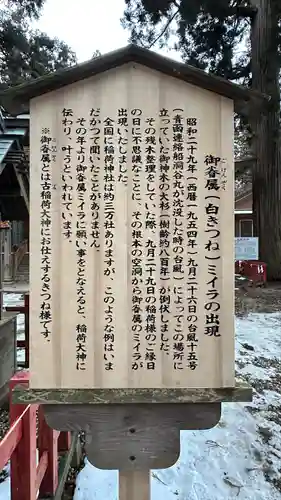 御眷属（白きつね）ミイラの出現
ごけんぞく
昭和二十九年（西暦一九五四年）九月二十六日の台風十五号
（青函連絡船洞谷丸が沈没した時の台風）によってこの場所に
立っていた御神木の大杉（樹齢約八百年）が倒伏しました。
その残木整理をしていた際、九月二十九日の稲荷様のご縁日
の日に不思議なことに、その根本の空洞から御眷属のミイラが
出現いたしました。
全国に稲荷神社は約三万社ありますが、このような例はいま
だかつて聞いたことがありません。
その年より御眷属ミイラに願い事をとなえると、稲荷大神に
伝わり、叶うといわれています。
※御眷属とは古稲荷大神にお仕えするきつね様です。
ごけんぞく